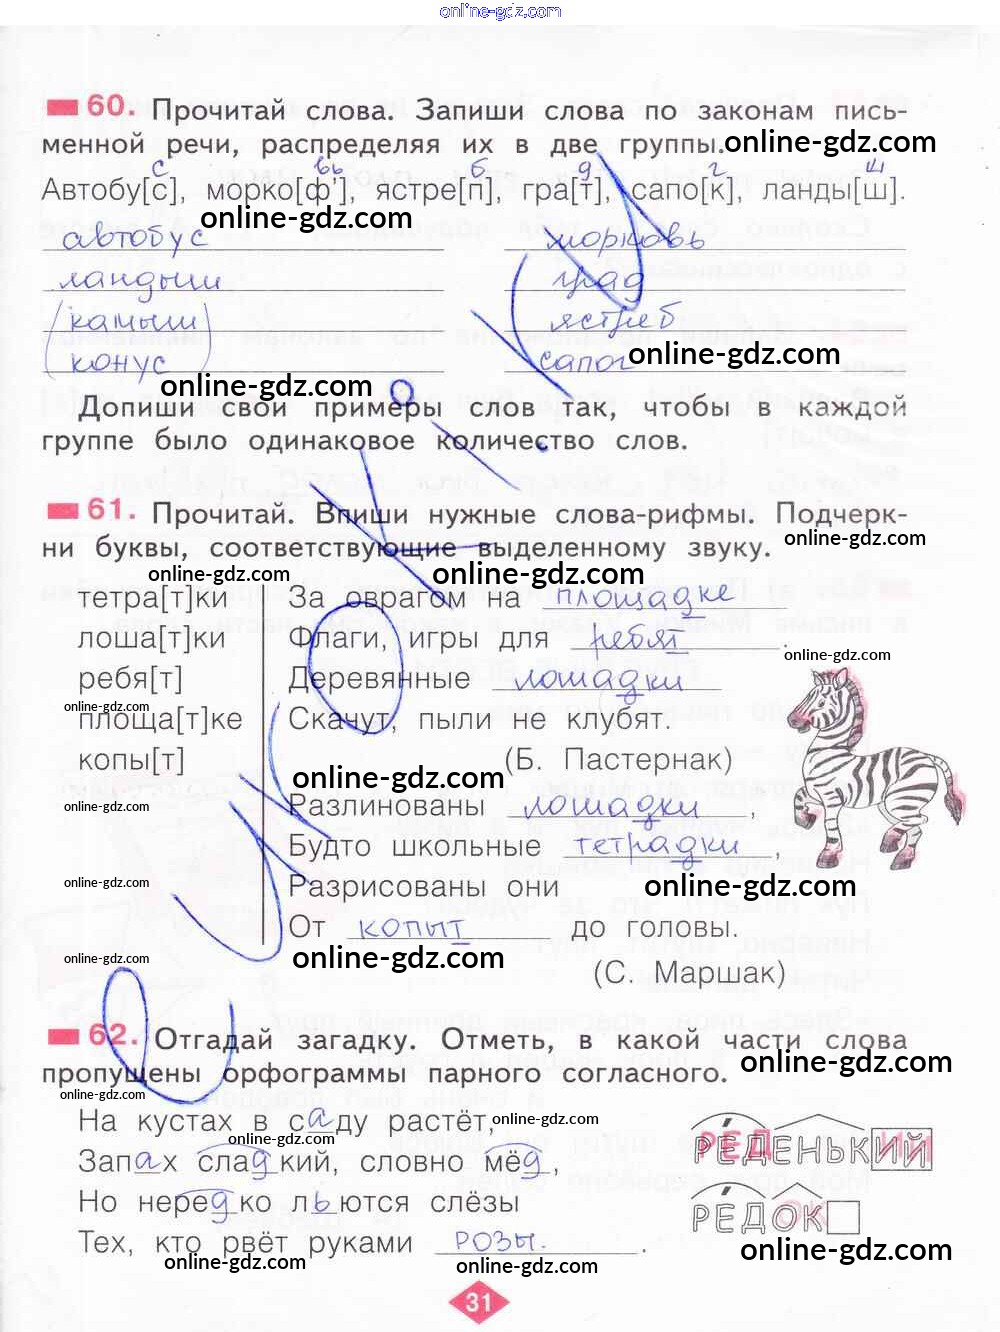 online-gdz.com
60. Прочитай слова. Запиши слова по законам пись-
менной речи, распределяя их в две группы.
online-gdz.com
с вь б д г ш
Автобу[с], морко[ф'], ястре[п], гра[т], сапо[к], ланды[ш].
online-gdz.com
online-gdz.com
автобус морковь
ландыш град
(камыш) ястреб
(конус) сапог
online-gdz.com
online-gdz.com
Допиши свои примеры слов так, чтобы в каждой
группе было одинаковое количество слов.
61. Прочитай. Впиши нужные слова-рифмы. Подчерк-
ни буквы, соответствующие выделенному звуку.
online-gdz.com
online-gdz.com
online-gdz.com
тетра[т]ки За оврагом на площадке
лоша[т]ки Флаги, игры для ребят.
online-gdz.com
ребя[т] Деревянные лошадки
online-gdz.com
площа[т]ке Скачут, пыли не клубят.
копы[т] (Б. Пастернак)
online-gdz.com
online-gdz.com
Разлинованы лошадки,
Будто школьные тетрадки,
online-gdz.com
Разрисованы они
online-gdz.com
От копыт до головы.
online-gdz.com
online-gdz.com
(С. Маршак)
62. Отгадай загадку. Отметь, в какой части слова
пропущены орфограммы парного согласного.
online-gdz.com
На кустах в саду растёт,
online-gdz.com
online-gdz.com
Запах сладкий, словно мёд,
РЕ́ДЕНЬКИЙ
online-gdz.com
Но нередко льются слёзы
РЕ́ДОК
Тех, кто рвёт руками розы.
online-gdz.com
online-gdz.com
online-gdz.com
31